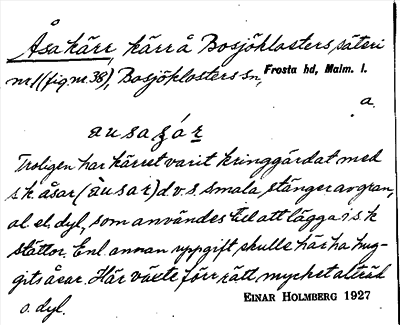 Åsakärr, kärr å Bosjöklosters säteri
nr 1 (fig. nr. 38), Bosjöklosters sn, Frosta hd, Malm. l.
a.
ausazár
Troligen har kärret varit kringgärdat med
s k åsar (àusar) d v s smala stänger av gran,
al el. dyl., som användes till att lägga i s k
stättor. Enl annan uppgift skulle här ha hug-
gits åsar. Här växte förr rätt mycket alträd
o. dyl.
EINAR HOLMBERG 1927